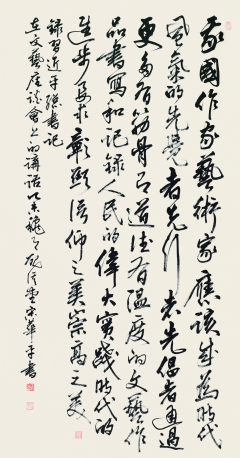 家國作家藝術家應該成為時代
風氣的先覺者先行者先倡者通過
更多有筋骨有道德有溫度的文藝作
品書寫和記錄人民的偉大實踐時代的
進步要求彰顯信仰之美崇高之美
錄習近平總書記
在文藝座談會上的講話
宋華平書